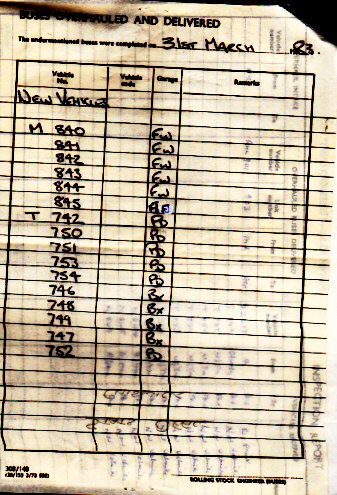 BUSES OVERHAULED AND DELIVERED
The undermentioned buses were completed on 31ST MARCH 1983.
Vehicle No. Vehicle code Garage Remarks
NEW VEHICLES
M 840 FW
841 FW
842 FW
843 FW
844 FW
845
T 742 PD
750 PD
751 PD
753 PD
754 PD
746 BX
748 BX
749 BX
747 BX
752 PD
308/148
ROLLING STOCK ENGINEER (BUSES)